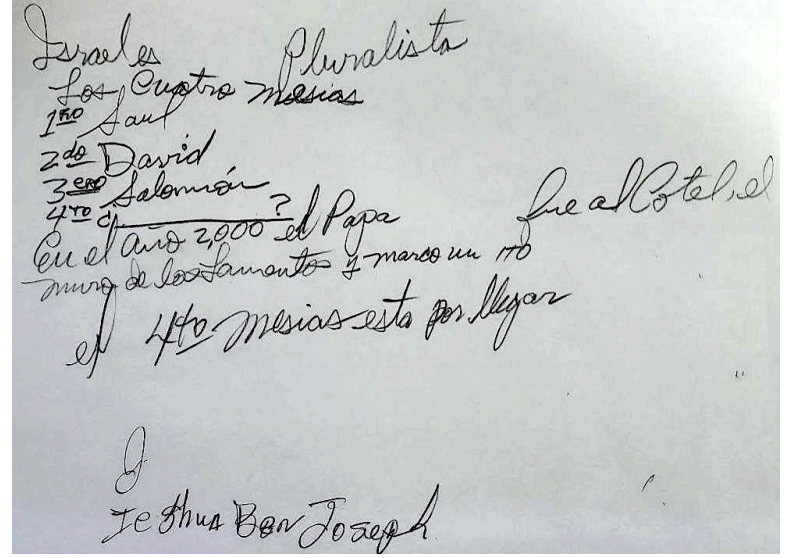 Israel es Pluralista
Los Cuatro Mesias
1ro Saul
2do David
3ero Salomón
4to ¿________?
En el año 2,000 el Papa fue al Cotel, el
muro de los Lamentos y marco un ITO
el 4to Mesias esta por llegar
Ieshua Ben Joseph